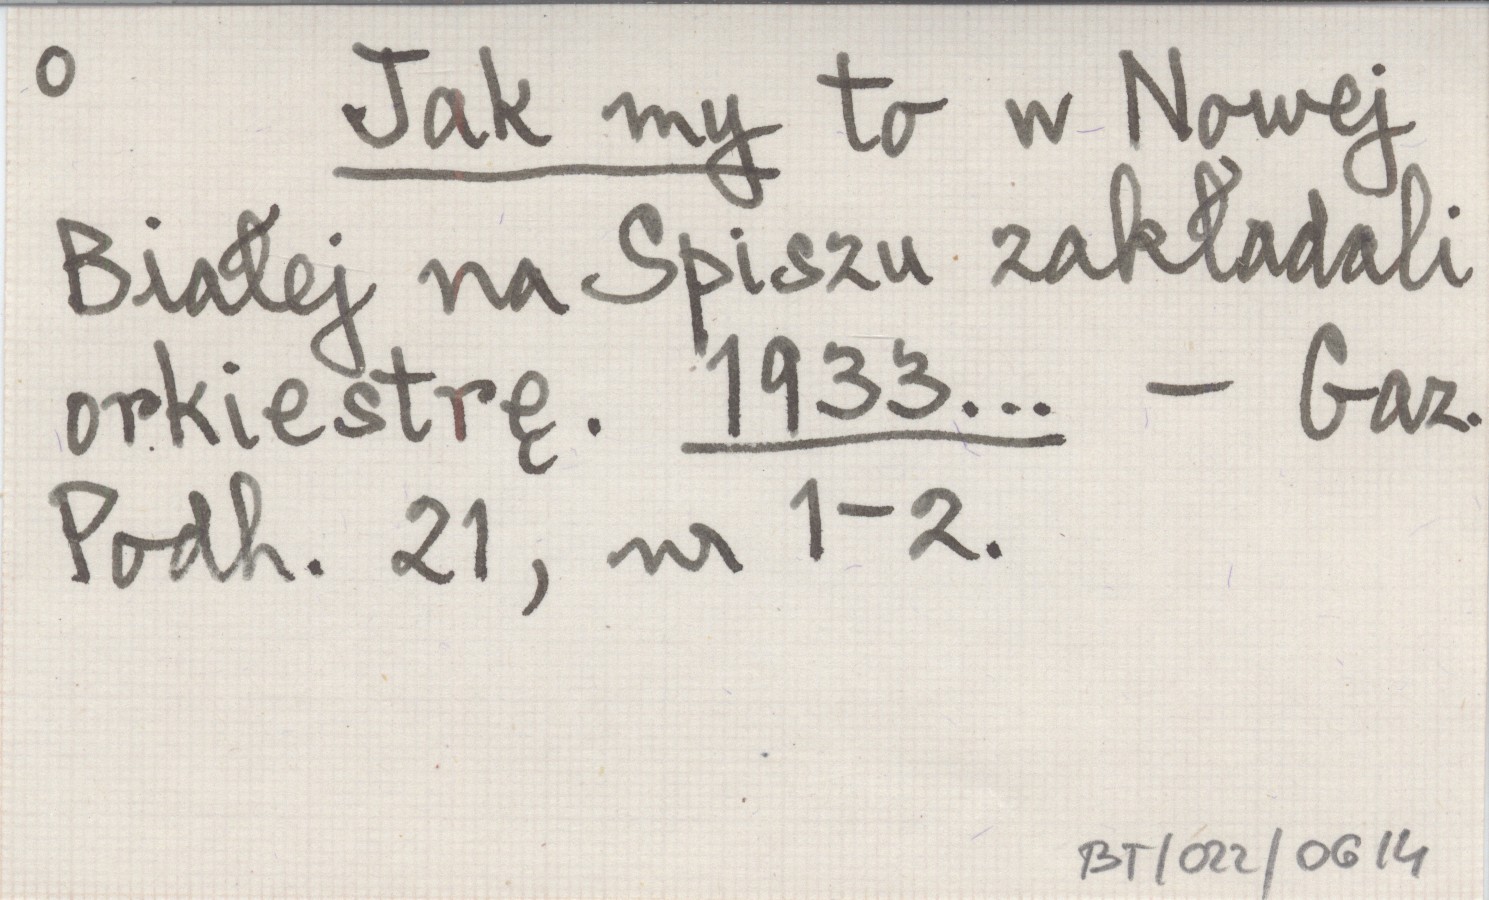 o Jak my to w Nowej
Białej na Spiszu zakładali
orkiestrę. 1933... - Gaz.
Podh. 21, nr 1-2.
BT/022/0614